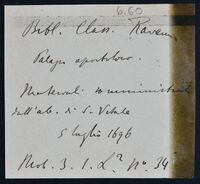 6.60
Bibl. Class. Raven
Palazzo apostolico.
Materiali somministrati
dall'ab. di S. Vitale
5 luglio 1696
Mob. 3. 1. L² Nº 34